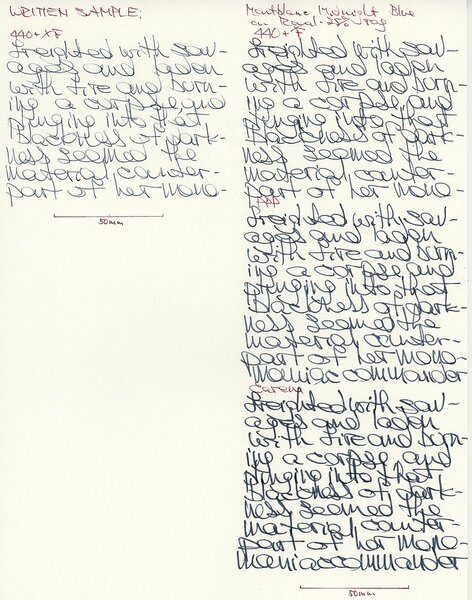 WRITTEN SAMPLE:
440+XF
freighted with sav-
ages and laden
with fire and burn-
ing a corpse and
plunging into that
Blackness of dark-
ness seemed the
material counter-
part of her mono-
50mm
Montblanc Midnight Blue
on
440+F
freighted with sav-
ages and laden
with fire and burn-
ing a corpse and
plunging into that
Blackness of dark-
ness seemed the
material counter-
part of her mono-
freighted with sav-
ages and laden
with fire and burn-
ing a corpse and
plunging into that
Blackness of dark-
ness seemed the
material counter-
part of her mono-
maniac commander
Carene
freighted with sav-
ages and laden
with fire and burn-
ing a corpse and
plunging into that
Blackness of dark-
ness seemed the
material counter-
part of her mono-
maniac commander
50mm